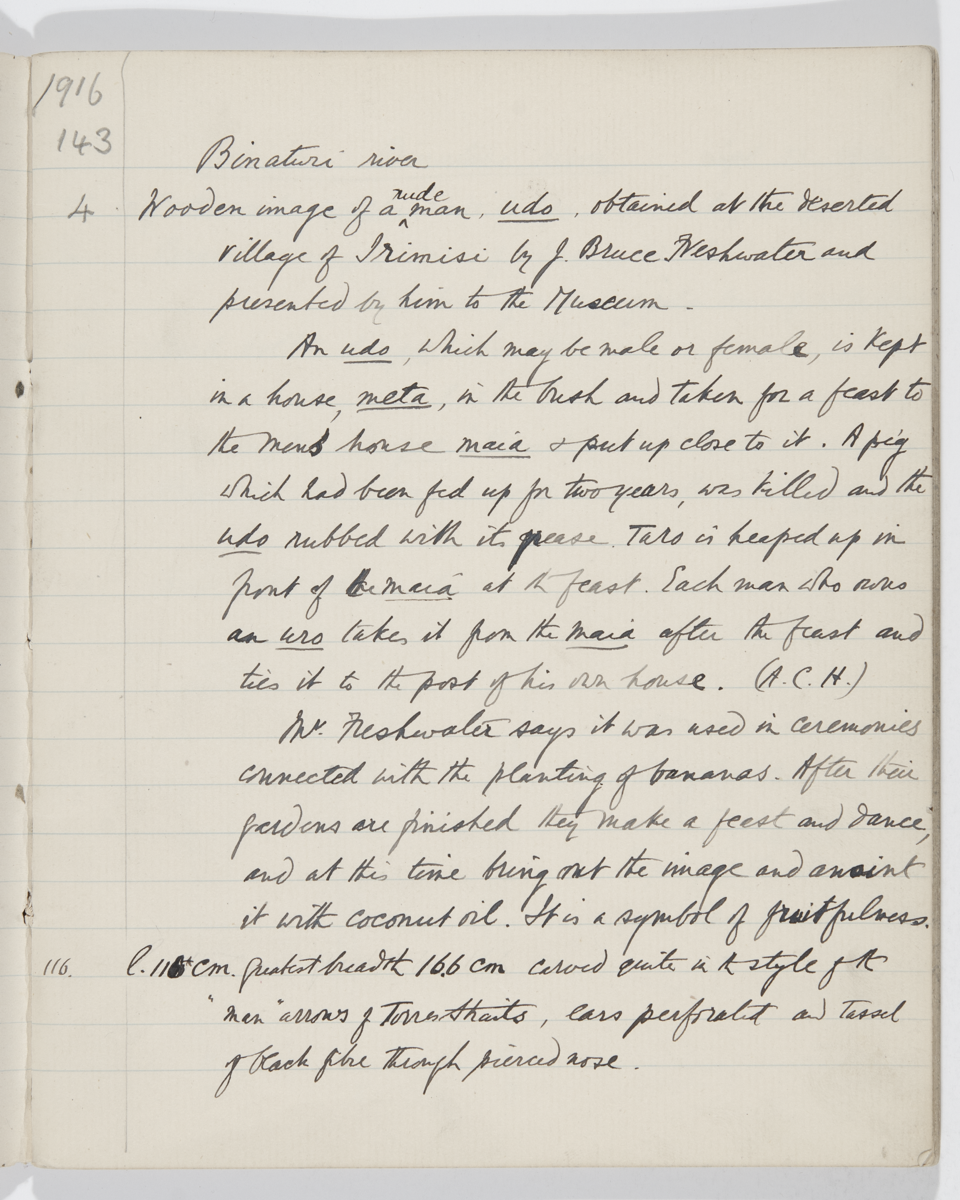 1916
143
Binaturi river
4 Wooden image of a nude man, udo, obtained at the deserted
village of Irimisi by J. Bruce Freshwater and
presented by him to the Museum.
An udo, which may be male or female, is kept
in a house, meta, in the bush and taken for a feast to
the mens house maia & put up close to it. A pig
which had been fed up for two years, was killed and the
udo rubbed with its grease. Taro is heaped up in
front of the maia at the feast. Each man who owns
an uro takes it from the maia after the feast and
ties it to the post of his own house. (A.C.H.)
Mr. Freshwater says it was used in ceremonies
connected with the planting of bananas. After their
gardens are finished they make a feast and dance,
and at this time bring out the image and anoint
it with coconut oil. It is a symbol of fruitfulness.
116. l. cm. greatest breadth 16.6 cm carved quite in the style of the
"man" arrows of Torres Straits, ears perforated and tassel
of black fibre through pierced nose.